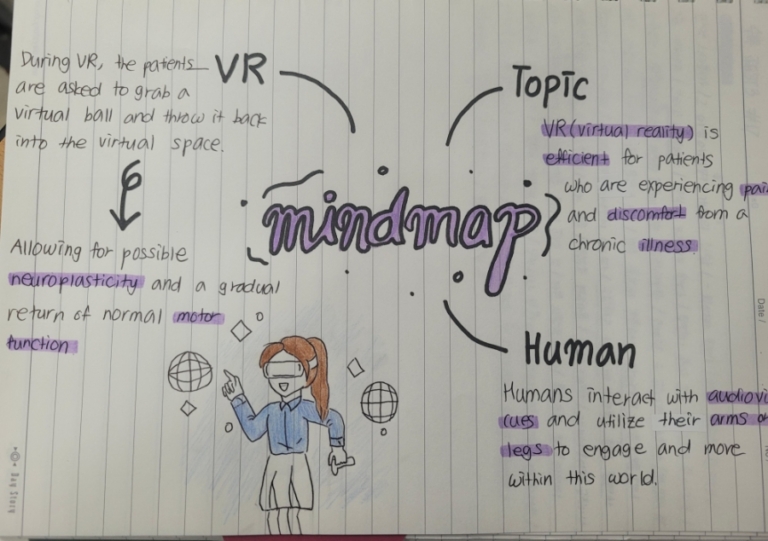 During VR, the patients
are asked to grab a
virtual ball and throw it back
into the virtual space.
VR
Allowing for possible
neuroplasticity and a gradual
return of normal motor
function
mindmap
Topic
VR (virtual reality) is
efficient for patients
who are experiencing
and discomfort from a
chronic illness
Human
Humans interact with
cues and utilize their arms or
legs to engage and move
within this world.
Date /